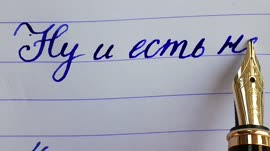 Ну и есть н